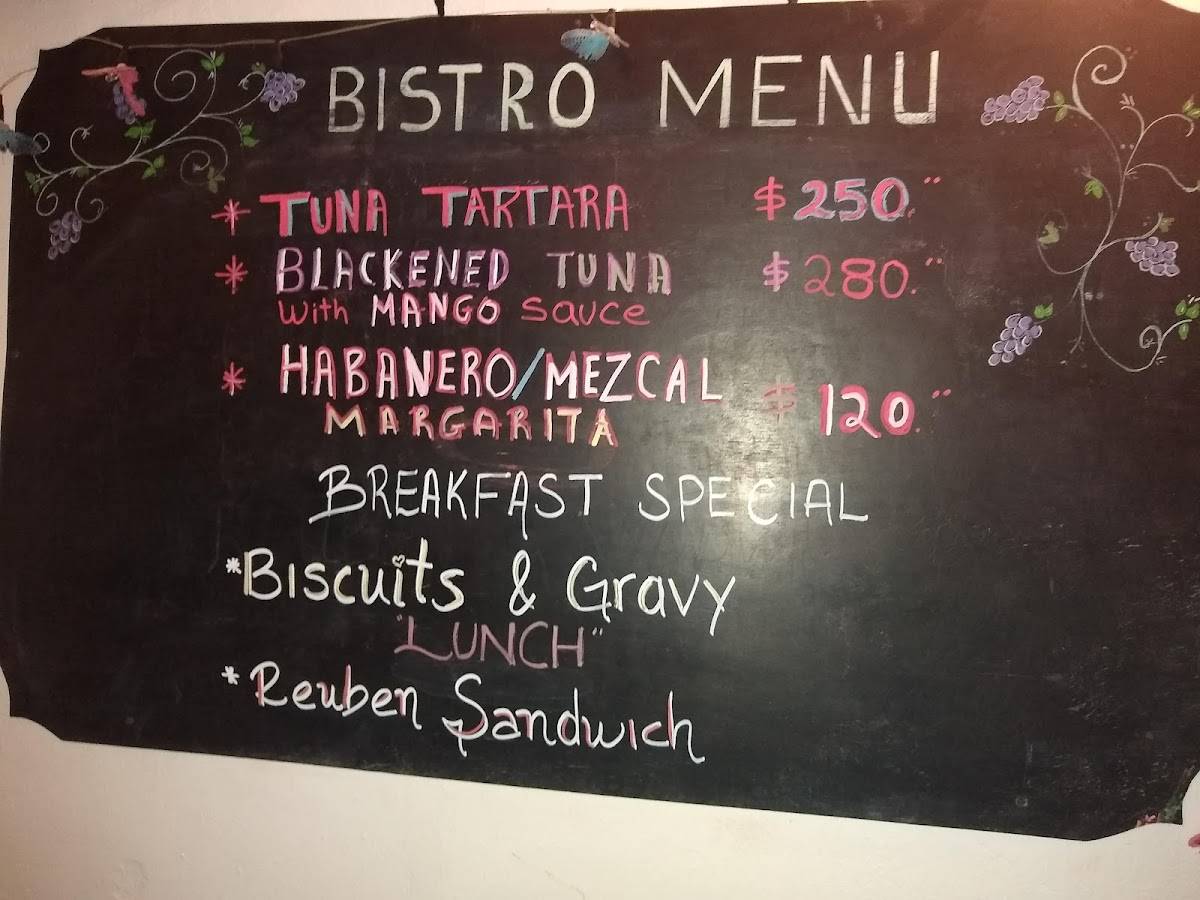 BISTRO MENU
* TUNA TARTARA $250."
* BLACKENED TUNA $280."
with MANGO sauce
* HABANERO/MEZCAL $120."
MARGARITA
BREAKFAST SPECIAL
*Biscuits & Gravy
"LUNCH"
*Reuben Sandwich